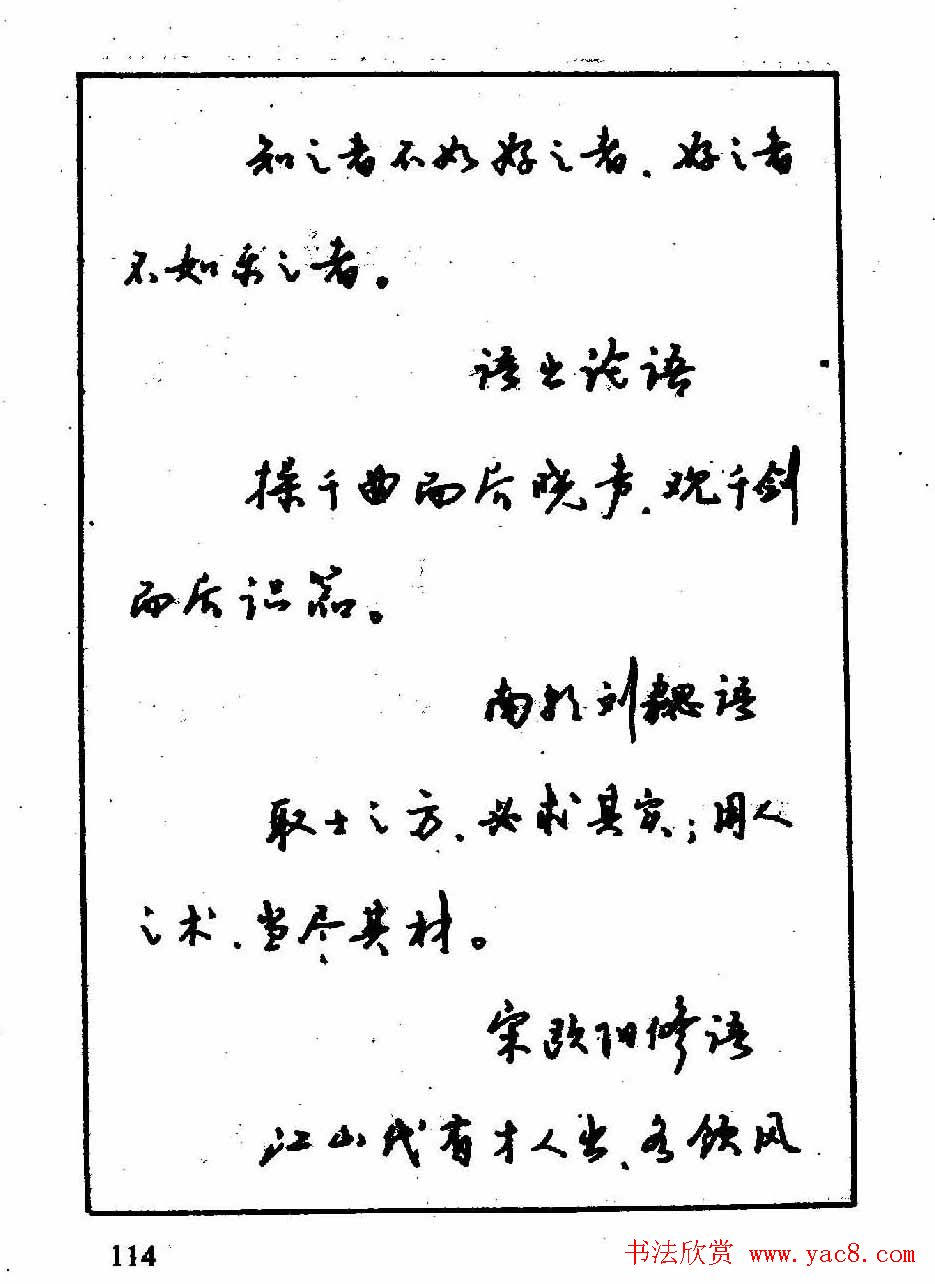 知之者不如好之者、好之者
不如乐之者。
语出论语
操千曲而后晓声、观千剑
而后识器。
南朝刘勰语
取士之方、必求其实；用人
之术、当尽其材。
宋欧阳修语
江山代有才人出、各领风
114
书法欣赏 www.yac8.com